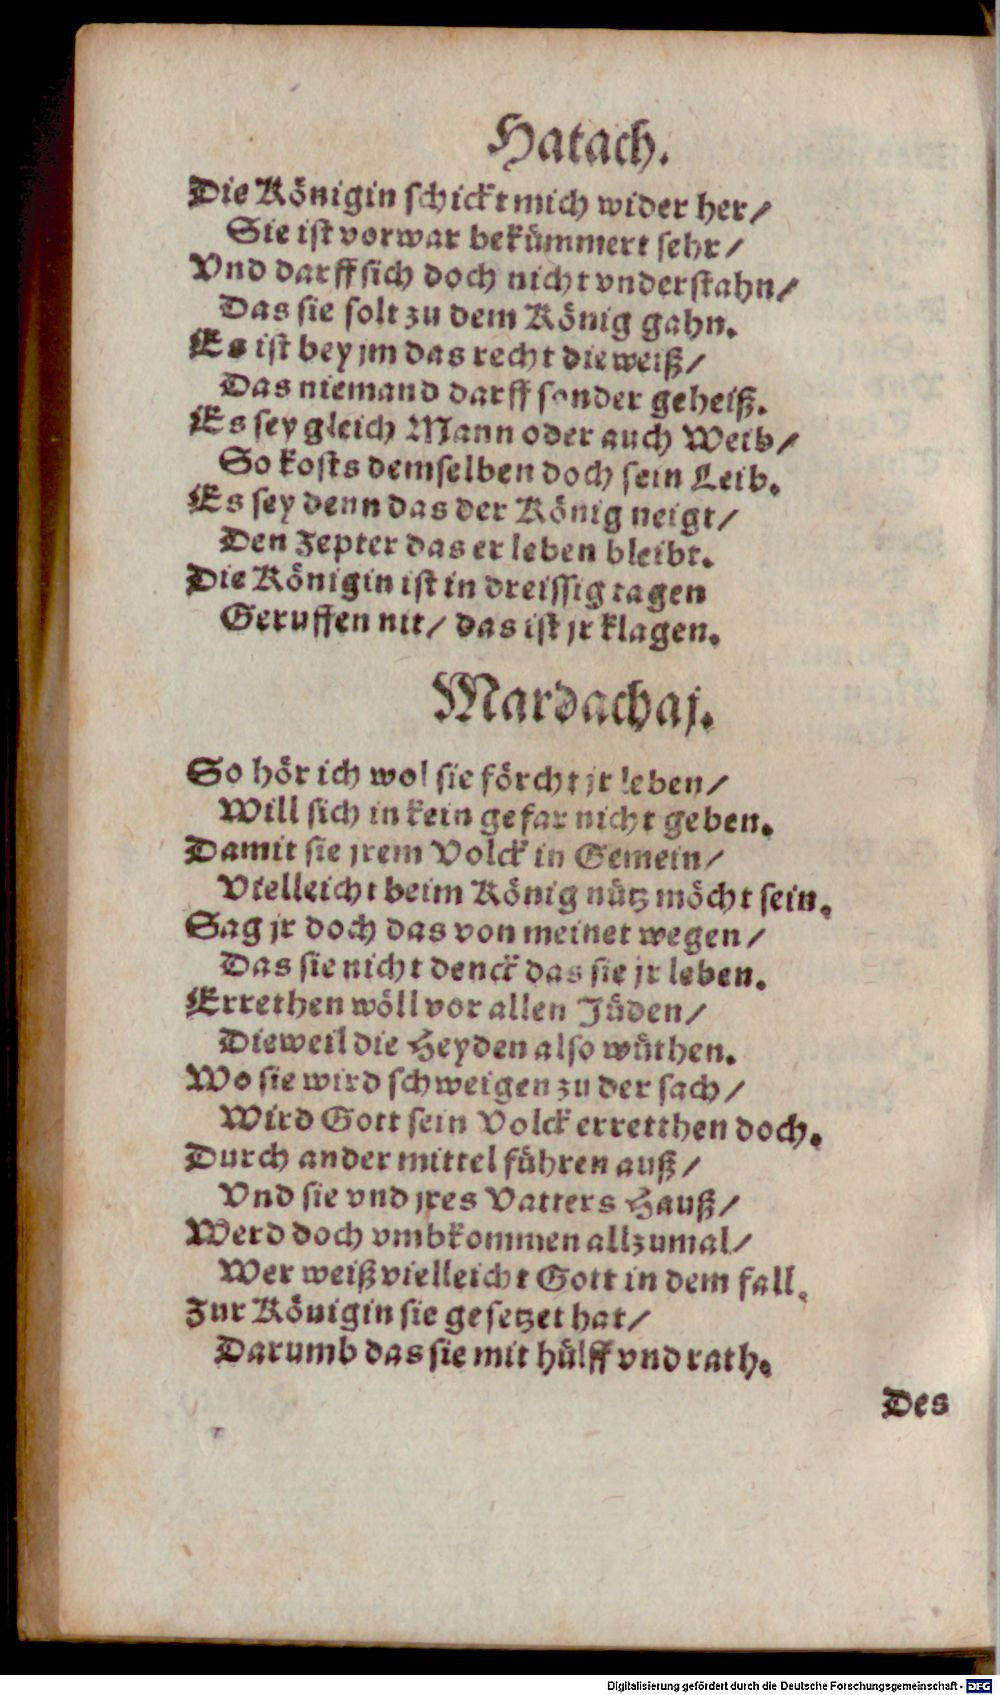 Hatach.
Die Königin schickt mich wider her/
Sie ist vorwar bekümmert sehr/
Vnd darff sich doch nicht vnderstahn/
Das sie solt zu dem König gahn.
Es ist bey jm das recht die weiß/
Das niemand darff sonder geheiß.
Es sey gleich Mann oder auch Weib/
So kosts demselben doch sein Leib.
Es sey denn das der König neigt/
Den Zepter das er leben bleibt.
Die Königin ist in dreissig tagen
Geruffen nit/ das ist jr klagen.
Mardachaj.
So hör ich wol sie förcht jr leben/
Will sich in kein gefar nicht geben.
Damit sie jrem Volck in Gemein/
Vielleicht beim König nütz möcht sein.
Sag jr doch das von meinet wegen/
Das sie nicht denck das sie jr leben.
Errethen wöll vor allen Jüden/
Dieweil die Heyden also wüthen.
Wo sie wird schweigen zu der sach/
Wird Gott sein Volck erretthen doch.
Durch ander mittel führen auß/
Vnd sie vnd jres Vatters Hauß/
Werd doch vmbkommen allzumal/
Wer weiß vielleicht Gott in dem fall.
Zur Köuigin sie gesetzet hat/
Darumb das sie mit hülff vnd rath.
Des
Digitalisierung gefördert durch die Deutsche Forschungsgemeinschaft - DFG